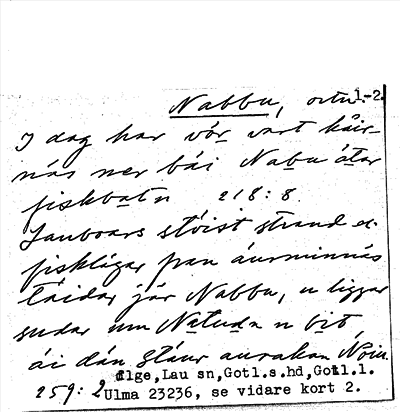 Nabbu, ortn. 1-2.
I dag har vör vart käir-
nás ner bäi Nabu átar
fiskbatn 218:8.
Lauboars stöist strand o.
fisklägar fran áurminnás
täidar jär Nabbu, u liggar
sudar um Natudn u bit
äi dán stáur aurakan Noiu
Glge, Lau sn, Gotl.s.hd, Gotl.l.
259:2 Ulma 23236, se vidare kort 2.